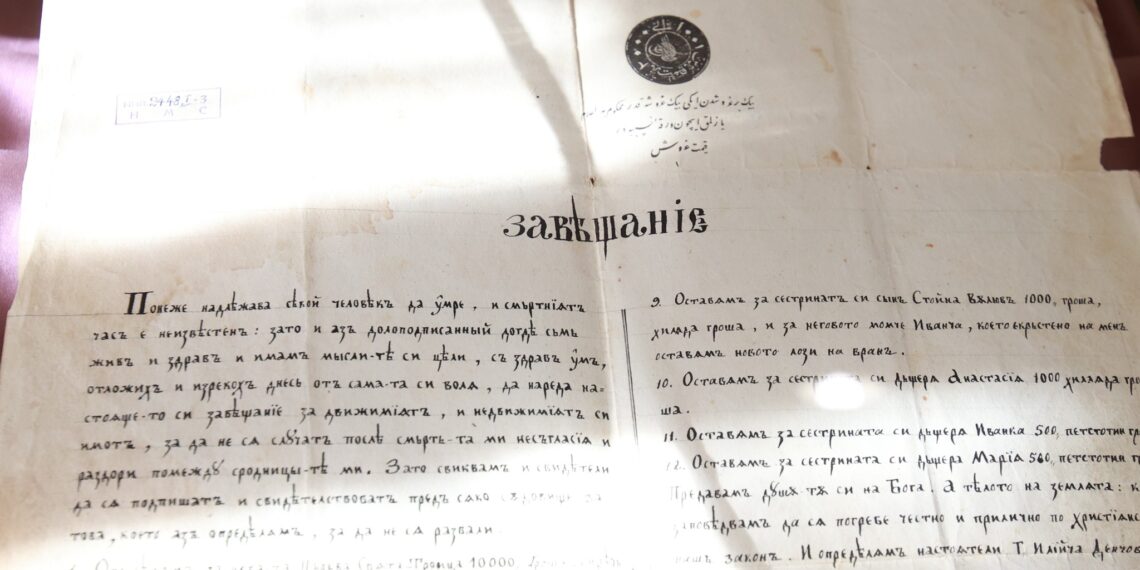 2448 I-3
Н М С
قيمت غروش
ЗАВѢЩАНІЕ
Понеже надлѣжава сѣкой человѣкъ да ꙋмре, и смьртнїатъ
часъ е неизвѣстенъ: зато и азъ долоподписанный догдѣ съмь
живъ и здравъ и имамъ мысли-тѣ си цѣли, съ здравъ ꙋмъ,
отложихъ и изрекохъ днесь отъ сама-та си волѧ, да нареда на-
стояще-то си завѣщание за движимїатъ, и недвижимїатъ си
имотъ, за да не сѧ слꙋчатъ послѣ смьрть-та ми несъгласїа и
раздори помеждꙋ сродницы-тѣ ми. Зато свиквамъ и свидѣтели
да сѧ подпишатъ и свидѣтелствоватъ предъ сѧко сѫдовище за
това, което азъ опредѣлѧмъ, за да не сѧ развали.
10000
9. Оставамъ за сестринатъ си сынъ Стойна Вѫлювъ 1000, гроша,
хилѧда гроша, и за неговото момче Иванча, което екрьстено на менъ
оставамъ новото лози на вранъ.
10. Оставамъ за сестрината си дъщера Анастасїа 1000 хилѧда гро
ша.
11. Оставамъ за сестрината си дъщера Иванка 500, петстотин гр
12. Оставамъ за сестрината си дъщера Марїа 500, петстотин г
Предавамъ дꙋшѫ-тѫ си на Бога. А тѣлото на землата: к
заповѣдвамъ да сѧ погребе честно и прилично по христїанс
нашъ законъ. И опредѣлѧмъ настоѧтели Т. Илїйча Денчов